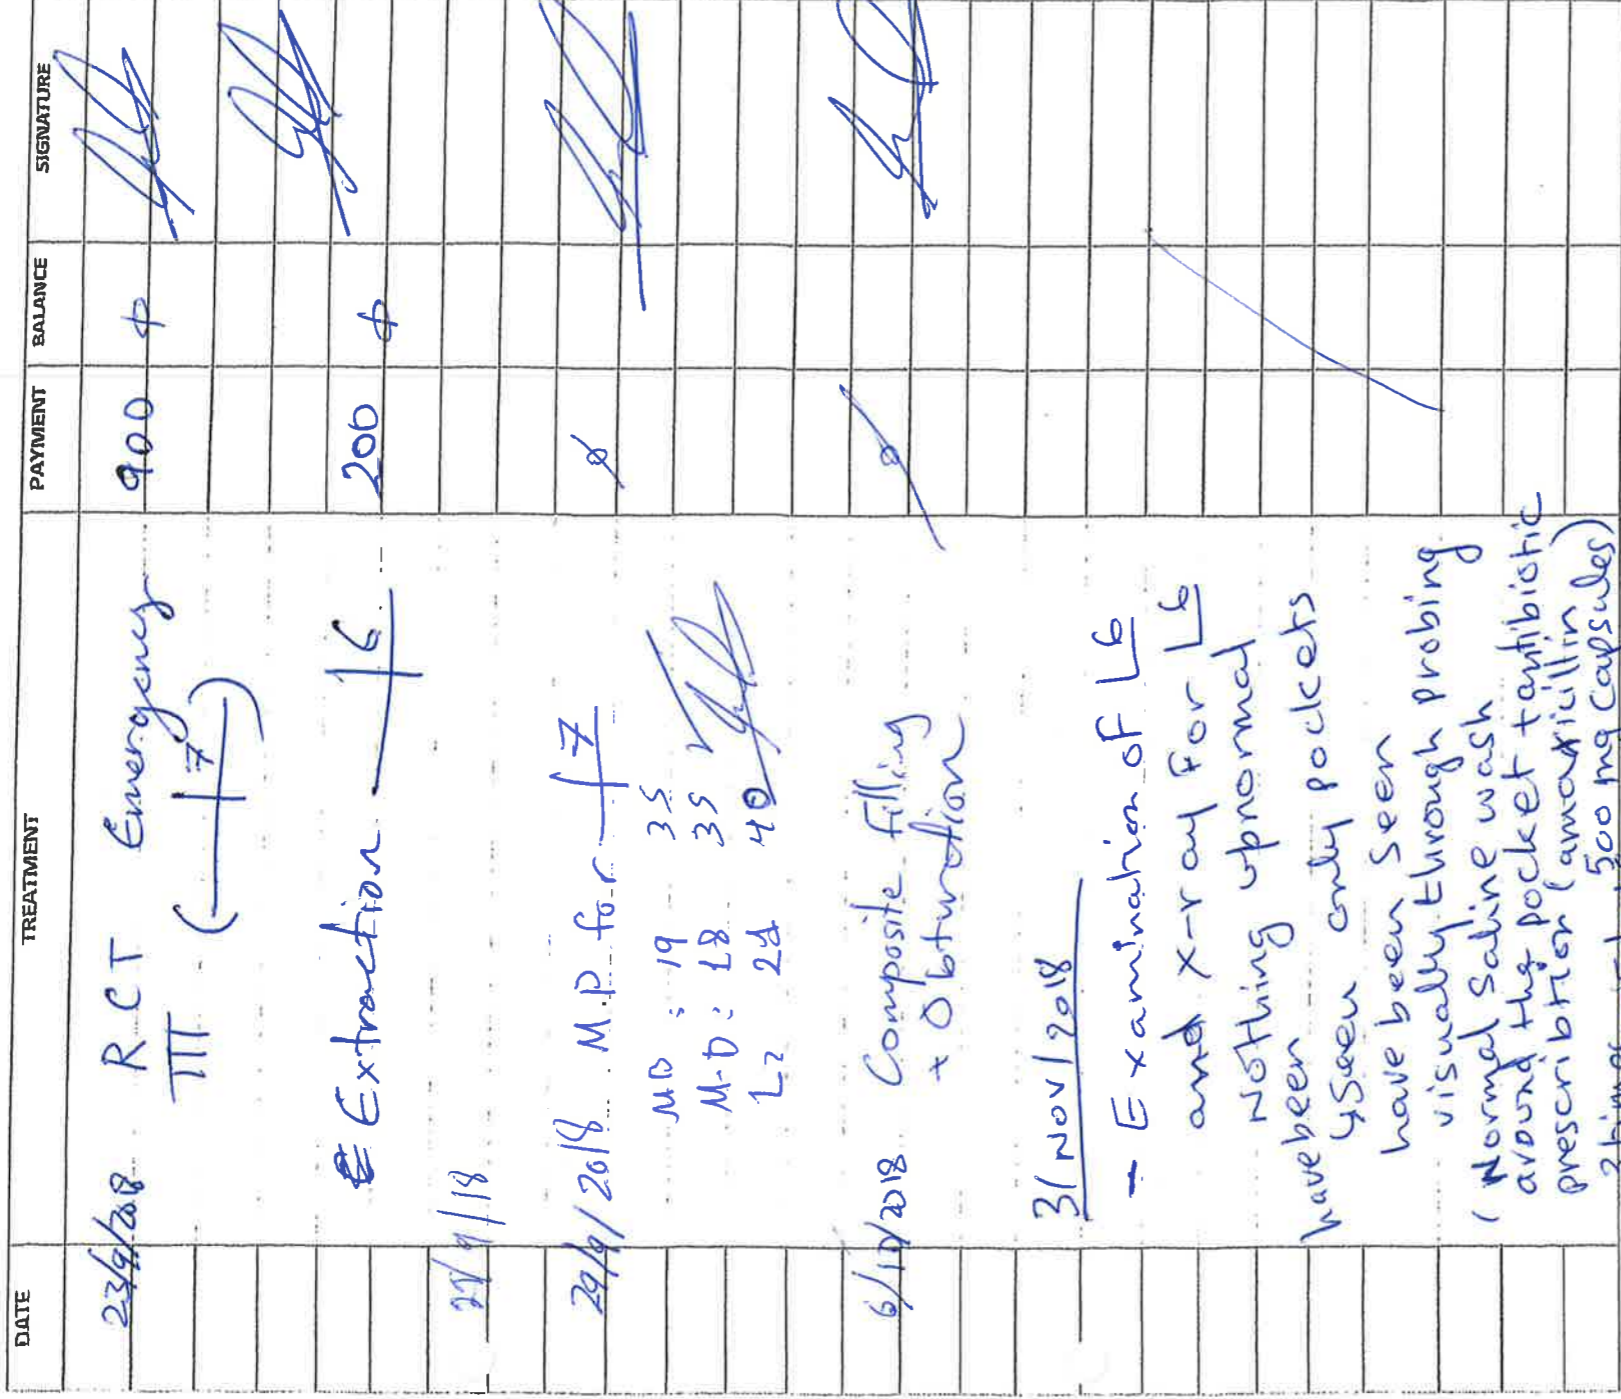 DATE TREATMENT PAYMENT BALANCE SIGNATURE
23/9/2018 R.C.T Emergency 900
III ( 7 )
Extraction 6 200
/9/18
29/9/2018 M.P for 7 ø
MB : 19 35
M-D : 18 35
L2 21 40
6/10/2018 Composite filling ø
+ Obturation
3/Nov/2018
- Examination of L6
and x-ray For L6
Nothing upnormal
have been
seen only pockets
have been seen
visually through probing
(Normal Saline wash
around the pocket + antibiotic
prescribtion (amoxicillin)
500 mg capsules)